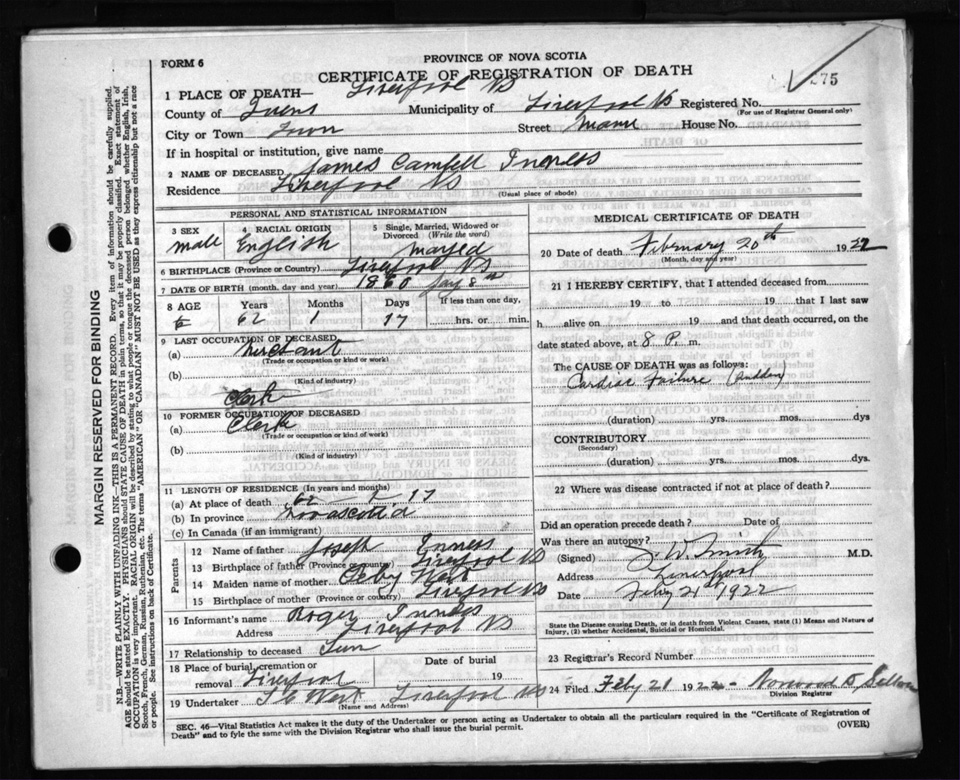 PROVINCE OF NOVA SCOTIA
FORM 6
CERTIFICATE OF REGISTRATION OF DEATH
75
1 PLACE OF DEATH— Liverpool NS
County of Queens Municipality of Liverpool NS Registered No.
(For use of Registrar General only)
City or Town Town Street Main House No.
If in hospital or institution, give name
2 NAME OF DECEASED James Camfell Inness
Residence Liverpool NS
(Usual place of abode)
PERSONAL AND STATISTICAL INFORMATION
3 SEX male
4 RACIAL ORIGIN English
5 Single, Married, Widowed or Divorced (Write the word) Maried
6 BIRTHPLACE (Province or Country) Liverpool NS
7 DATE OF BIRTH (month, day and year) 1860 Jay 8th
8 AGE Years Months Days If less than one day,
62 1 17 hrs. or min.
9 LAST OCCUPATION OF DECEASED
(a) Merchant
(Trade or occupation or kind or work)
(b)
(Kind of industry)
Clerk
10 FORMER OCCUPATION OF DECEASED
(a) Clerk
(Trade or occupation or kind or work)
(b)
(Kind of industry)
11 LENGTH OF RESIDENCE (In years and months)
(a) At place of death 62 17
(b) In province Novascotia
(c) In Canada (if an immigrant)
Parents
12 Name of father Joseph Inness
13 Birthplace of father (Province or country) Liverpool NS
14 Maiden name of mother West
15 Birthplace of mother (Province or country) Liverpool NS
16 Informant's name Roger Inness
Address Liverpool NS
17 Relationship to deceased Sun
18 Place of burial, cremation or removal Liverpool
Date of burial
19
19 Undertaker West Liverpool NS
(Name and Address)
MEDICAL CERTIFICATE OF DEATH
20 Date of death February 20th 1922
(Month, day and year)
21 I HEREBY CERTIFY, that I attended deceased from
19 to 19 that I last saw
h alive on 19 and that death occurred, on
date stated above, at 8 P. m.
The CAUSE OF DEATH was as follows:
Cardiac Failure (Sudden)
(duration) yrs. mos. dys
CONTRIBUTORY
(Secondary)
(duration) yrs. mos. dys.
22 Where was disease contracted if not at place of death?
Did an operation precede death? Date of
Was there an autopsy?
(Signed) J. W. Smith M.D.
Address Liverpool
Date Feby 21st 1922
State the Disease causing Death, or in death from Violent Causes, state (1) Means and Nature of Injury, (2) whether Accidental, Suicidal or Homicidal.
23 Registrar's Record Number
24 Filed Feby 21 1922 Norwood
Division Registrar
SEC. 46—Vital Statistics Act makes it the duty of the Undertaker or person acting as Undertaker to obtain all the particulars required in the "Certificate of Registration of
Death" and to fyle the same with the Division Registrar who shall issue the burial permit. (OVER)
MARGIN RESERVED FOR BINDING
N.B.—WRITE PLAINLY WITH UNFADING INK—THIS IS A PERMANENT RECORD. Every item of information should be carefully supplied.
AGE should be stated EXACTLY. PHYSICIANS should STATE CAUSE OF DEATH in plain terms, so that it may be properly classified. Exact statement of
OCCUPATION is very important. RACIAL ORIGIN will be described by stating to what people or tongue the deceased person belonged whether English, Irish,
Scotch, French, German, Russian, Ruthenian, etc. The terms "AMERICAN" OR "CANADIAN" MUST NOT BE USED as they express citizenship but not a race
or people. See instructions on back of Certificate.